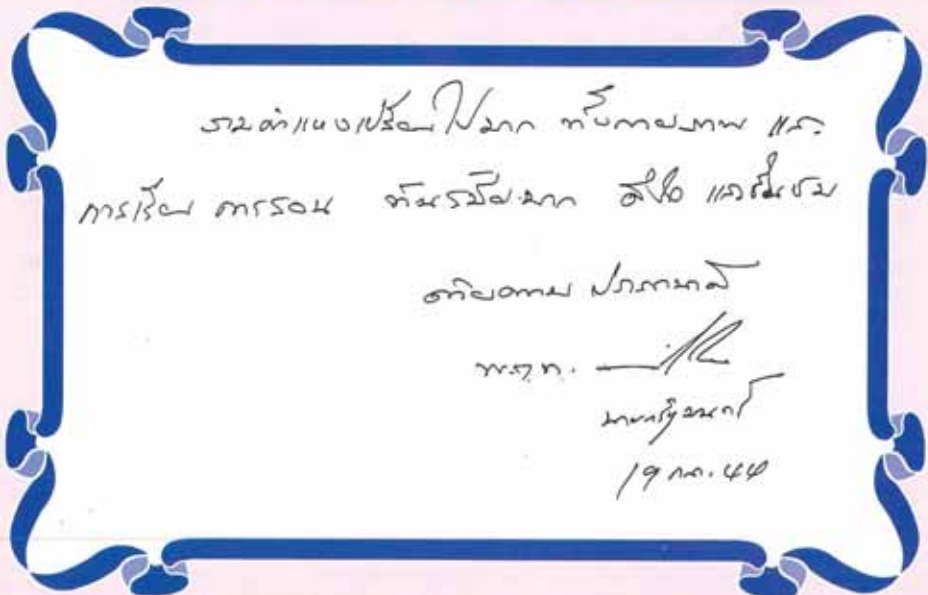 รามคำแหงเปลี่ยนไปมาก ทั้งกายภาพ และ
การเรียน การสอน ทันสมัยมาก ดีใจ และชื่นชม
ด้วยความ ปรารถนาดี
พ.ต.ท.
นายกรัฐมนตรี
19 ก.ค. 44